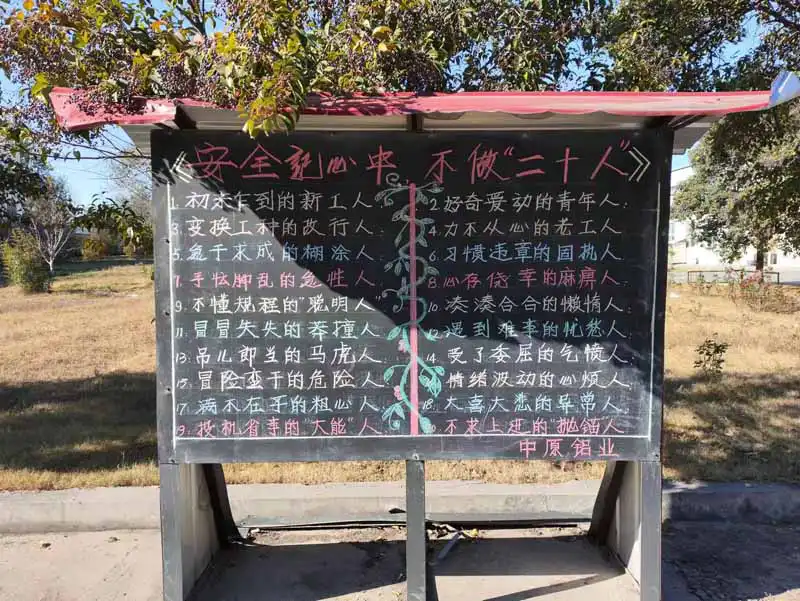 《安全记心中，不做“二十人”》
1. 初来乍到的新工人； 2. 好奇爱动的青年人；
3. 变换工种的改行人； 4. 力不从心的老工人；
5. 急于求成的糊涂人； 6. 习惯违章的固执人；
7. 手忙脚乱的急性人； 8. 心存侥幸的麻痹人；
9. 不懂规程的“聪明人” 10. 凑凑合合的懒惰人；
11. 冒冒失失的莽撞人； 12. 遇到难事的忧愁人；
13. 吊儿郎当的马虎人； 14. 受了委屈的气愤人；
15. 冒险蛮干的危险人； 情绪波动的心烦人；
17. 满不在乎的粗心人； 18. 大喜大悲的异常人；
19. 投机省事的“大能”人； 20. 不求上进的“抛锚人
中原铝业